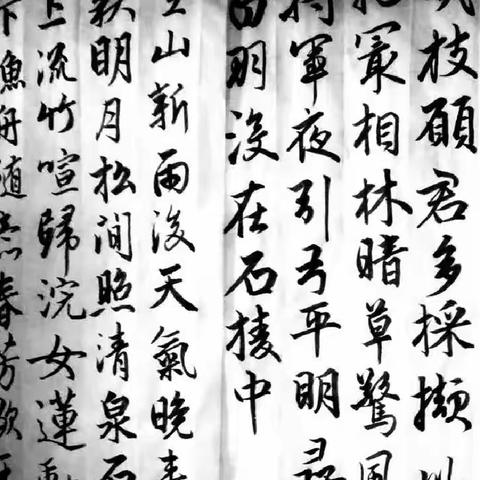 枝願君多採擷
最相林暗草驚風
將軍夜引弓平明尋
白羽沒在石棱中
空山新雨後天氣晚來
秋明月松間照清泉石
上流竹喧歸浣女蓮動
下漁舟隨意春芳歇王